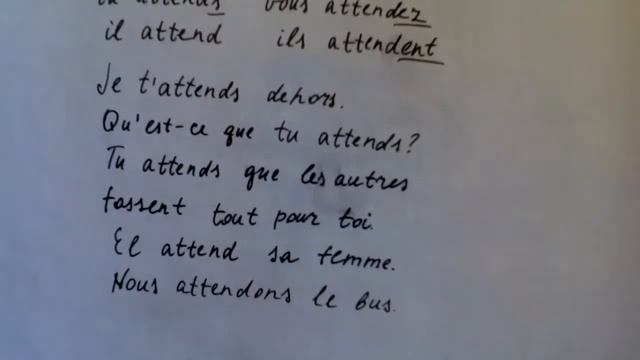 tu attends vous attendez
il attend ils attendent
Je t'attends dehors.
Qu'est-ce que tu attends?
Tu attends que les autres
fassent tout pour toi.
El attend sa femme.
Nous attendons le bus.